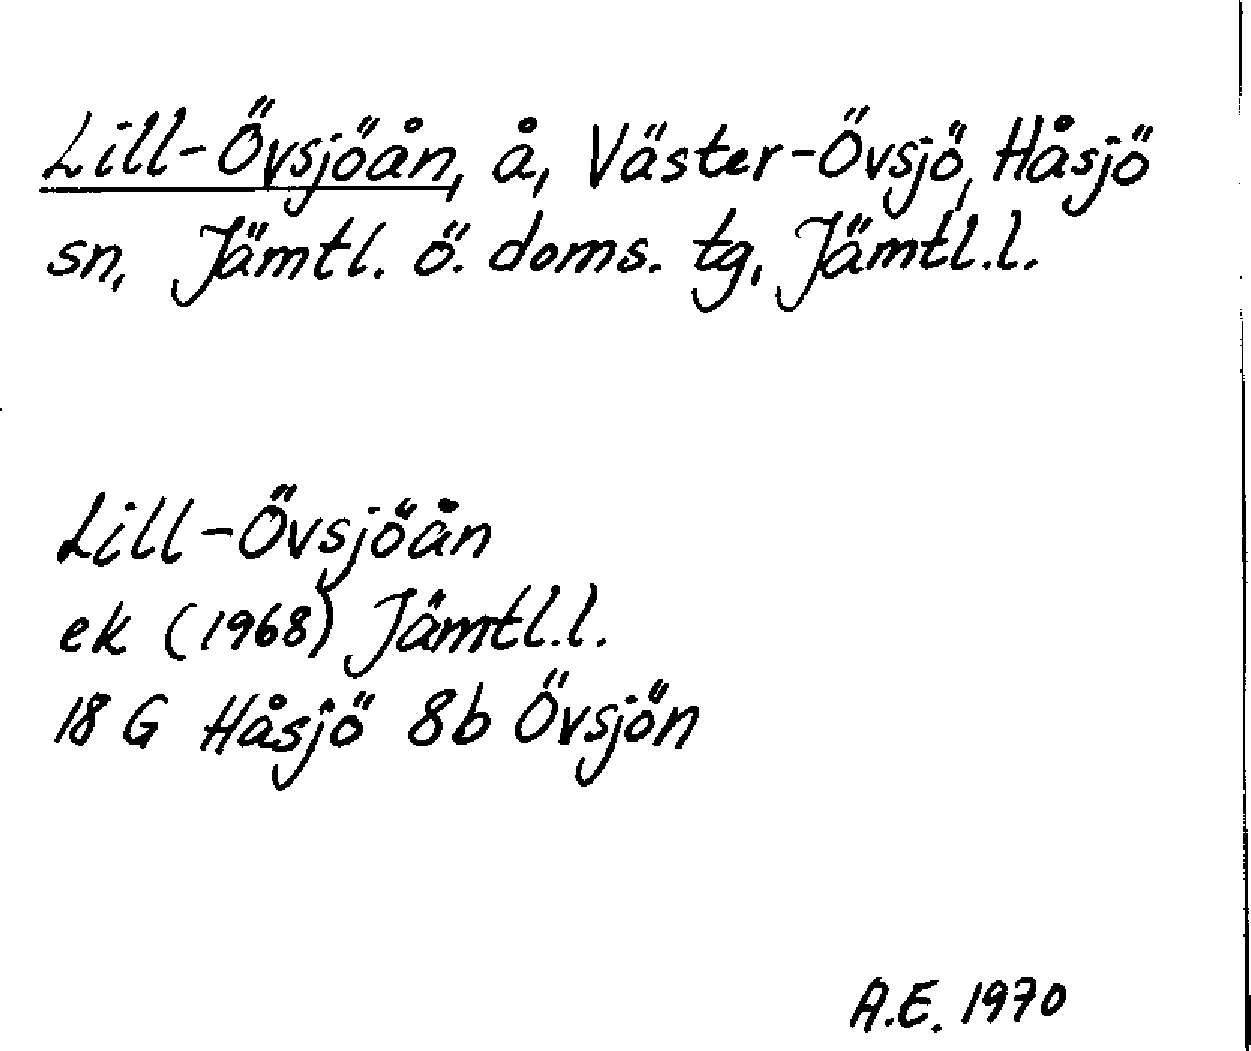 Lill-Övsjöån, å, Väster-Övsjö, Håsjö
sn, Jämtl. ö. doms. tg, Jämtl.l.
Lill-Övsjöån
ek (1968) Jämtl.l.
18 G Håsjö 8b Övsjön
A.E. 1970